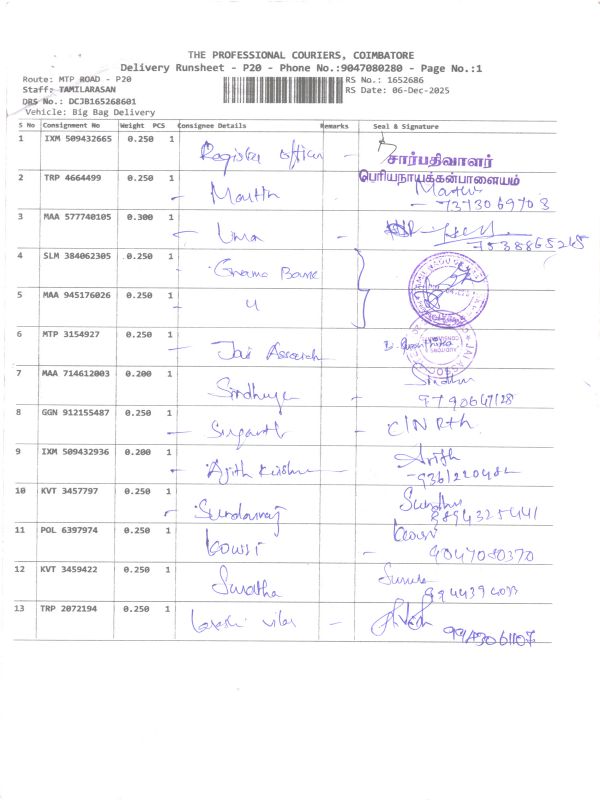 THE PROFESSIONAL COURIERS, COIMBATORE
Delivery Runsheet - P20 - Phone No.:9047080280 - Page No.:1
Route: MTP ROAD - P20 RS No.: 1652686
Staff: TAMILARASAN RS Date: 06-Dec-2025
DRS No.: DCJB165268601
Vehicle: Big Bag Delivery
S No Consignment No Weight PCS Consignee Details Remarks Seal & Signature
1 IXM 509432665 0.250 1 Register officer சார்பதிவாளர்
பெரியநாயக்கன்பாளையம்
2 TRP 4664499 0.250 1
7373069708
3 MAA 577740105 0.300 1 Uma
7538865265
4 SLM 384062305 0.250 1 Bank
5 MAA 945176026 0.250 1 "
6 MTP 3154927 0.250 1 Jai
7 MAA 714612003 0.200 1 Sindhuja Sindhu
9790647128
8 GGN 912155487 0.250 1 C/N Rth
9 IXM 509432936 0.200 1 Ajith Krishna Ajith
10 KVT 3457797 0.250 1 Sundarraj
9894325441
11 POL 6397974 0.250 1 Kowsi Kowsi
9047080370
12 KVT 3459422 0.250 1 Swatha
13 TRP 2072194 0.250 1 vilas
9943061107